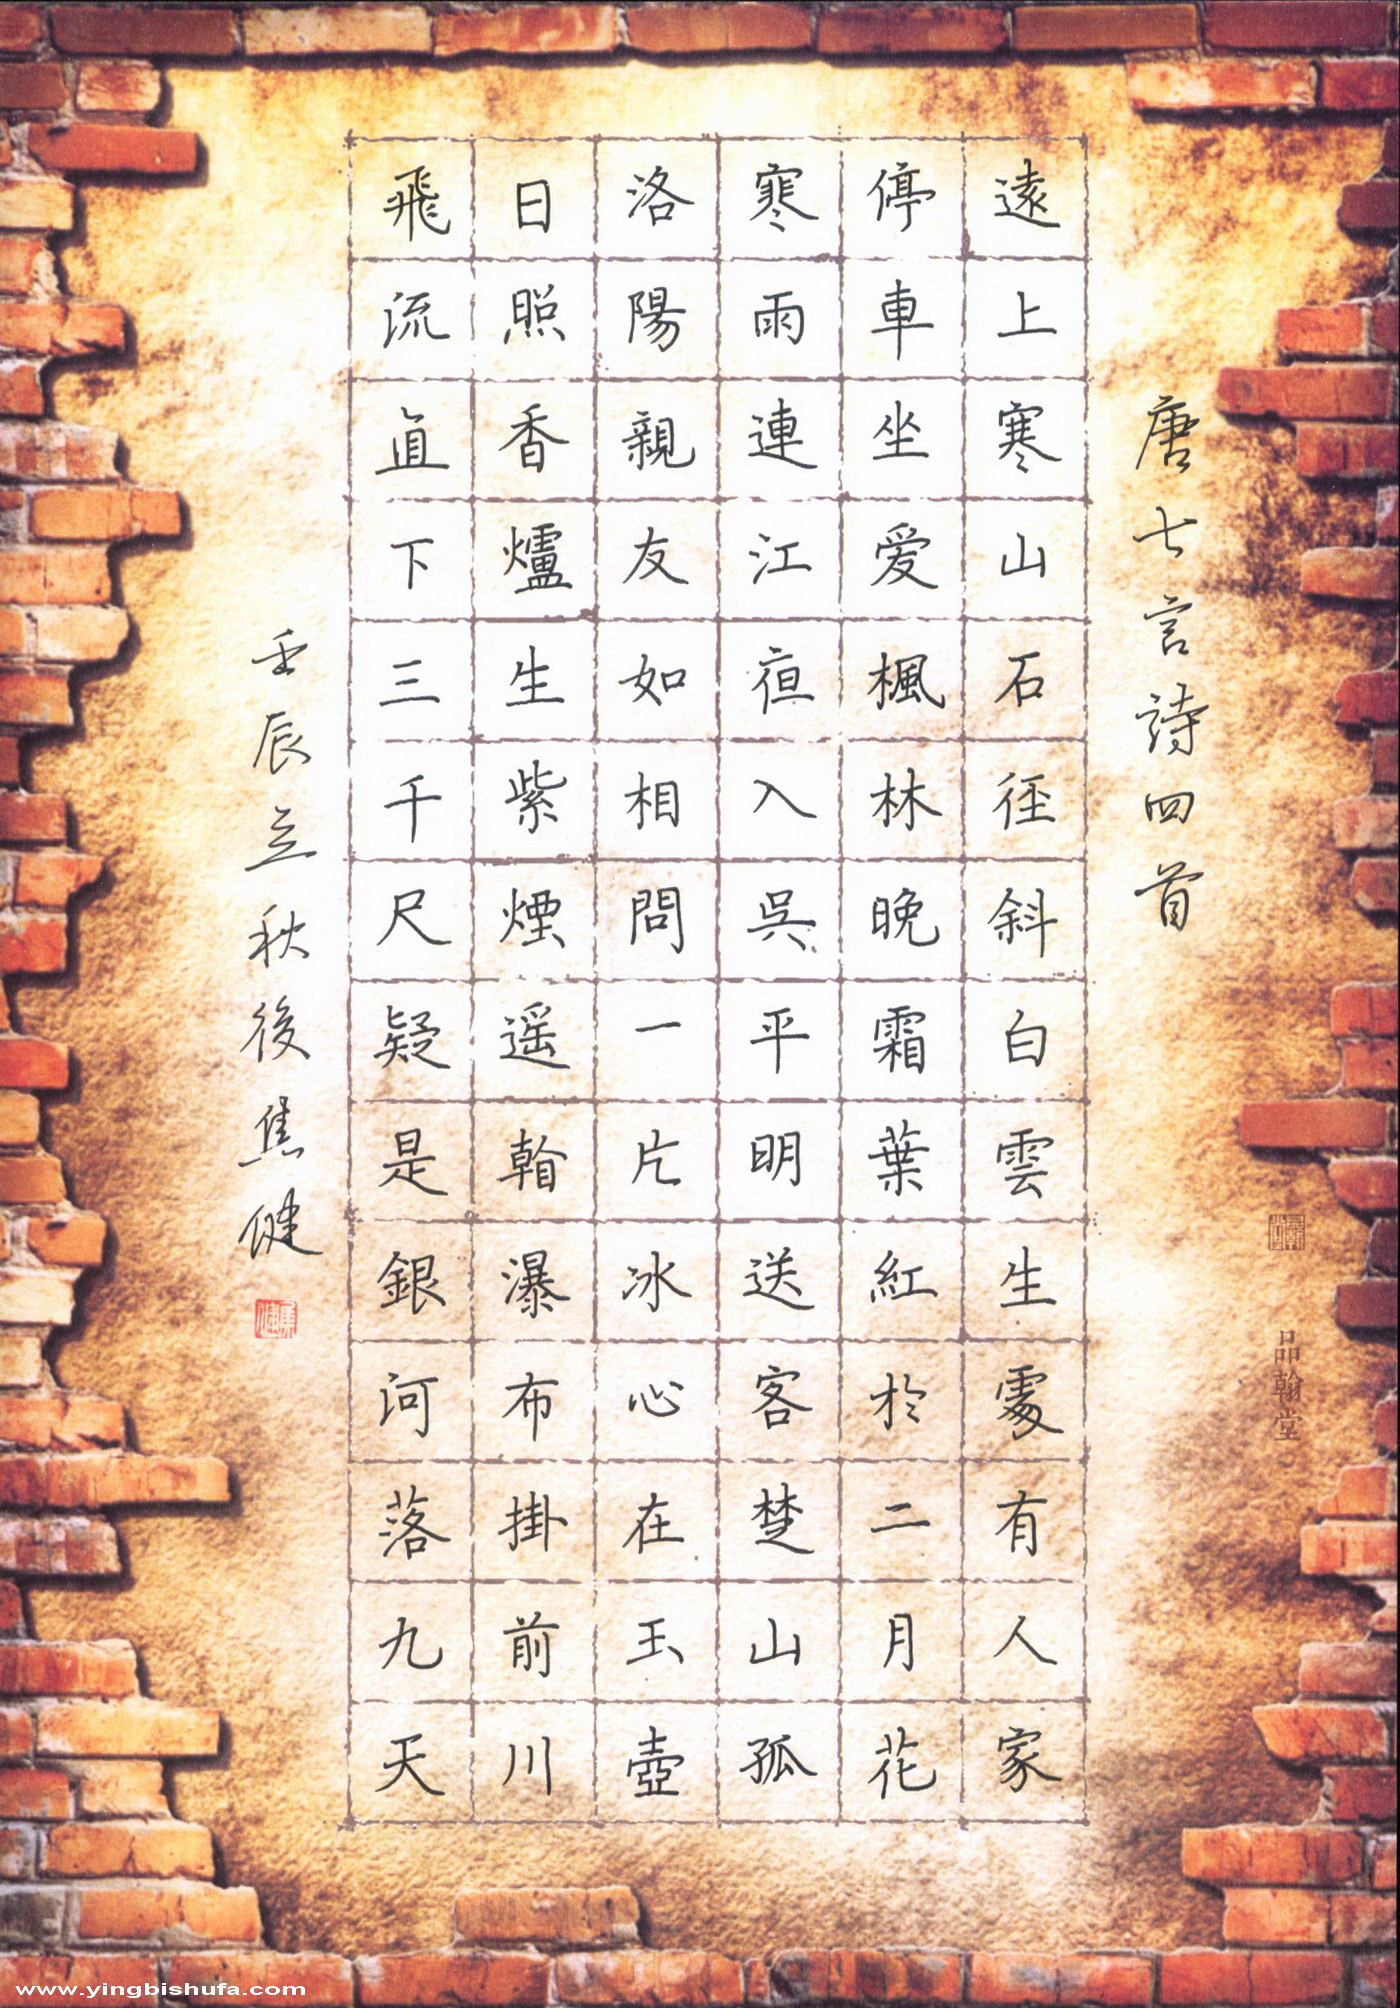 唐七言詩四首
遠上寒山石徑斜白雲生處有人家
停車坐爱楓林晚霜葉紅於二月花
寒雨連江夜入吳平明送客楚山孤
洛陽親友如相問一片冰心在玉壺
日照香爐生紫煙遥看瀑布掛前川
飛流直下三千尺疑是銀河落九天
壬辰立秋後焦健
焦健
品翰堂
www.yingbishufa.com